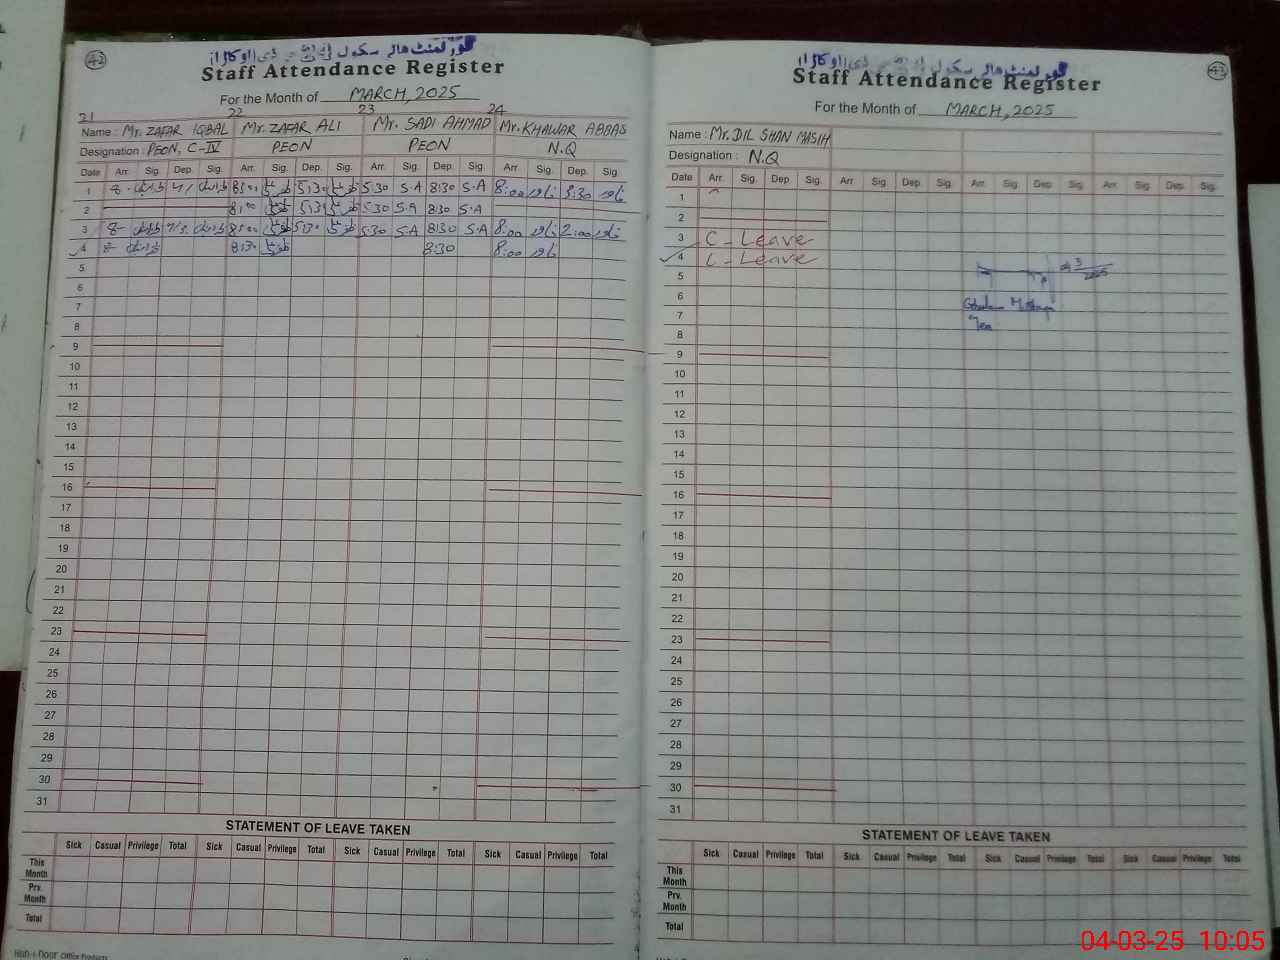 42
گورنمنٹ ہائی سکول
Staff Attendance Register
For the Month of MARCH, 2025
21 22 23 24
Name : Mr. ZAFAR IQBAL Mr. ZAFAR ALI Mr. SADI AHMAD Mr. KHAWAR ABBAS
Designation : PEON, C-IV PEON PEON N.Q
Date Arr. Sig. Dep. Sig. Arr. Sig. Dep. Sig. Arr. Sig. Dep. Sig. Arr. Sig. Dep. Sig.
1 8- 8:00 5:30 5:30 S.A 8:30 S.A 8:00 3:30
2 8:00 5:30 5:30 S.A 8:30 S.A
3 8- 8:00 5:30 5:30 S.A 8:30 S.A 8:00 2:00
4 8- 8:30 8:30 8:00
5
6
7
8
9
10
11
12
13
14
15
16
17
18
19
20
21
22
23
24
25
26
27
28
29
30
31
STATEMENT OF LEAVE TAKEN
Sick Casual Privilege Total Sick Casual Privilege Total Sick Casual Privilege Total Sick Casual Privilege Total
This Month
Prv. Month
Total
43
گورنمنٹ ہائی سکول
Staff Attendance Register
For the Month of MARCH, 2025
Name : Mr. DIL SHAN MASIH
Designation : N.Q
Date Arr. Sig. Dep. Sig. Arr. Sig. Dep. Sig. Arr. Sig. Dep. Sig. Arr. Sig. Dep. Sig.
1
2
3 C-Leave
4 C-Leave
5
6
7
8
9
10
11
12
13
14
15
16
17
18
19
20
21
22
23
24
25
26
27
28
29
30
31
STATEMENT OF LEAVE TAKEN
Sick Casual Privilege Total Sick Casual Privilege Total Sick Casual Privilege Total Sick Casual Privilege Total
This Month
Prv. Month
Total
04-03-25 10:05